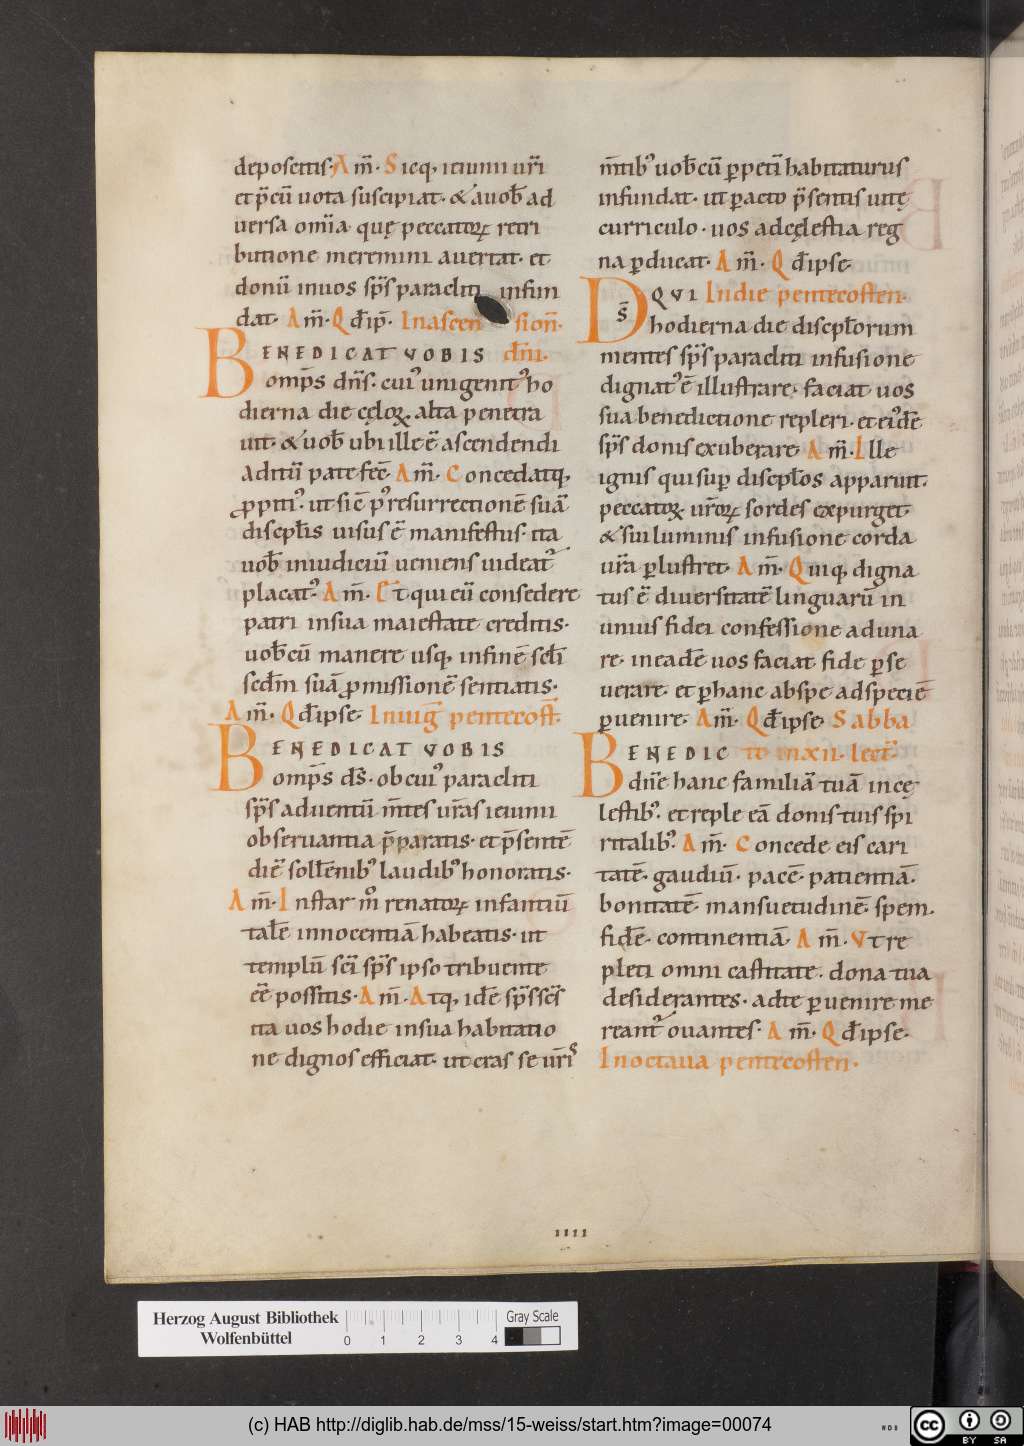 deposcitis· Am̄· Sicq; ieiunii uri̅
et p̄cū uota suscipiat· & a uob̅ ad
uersa om̄ia· quę peccatorꝝ retri
butione meremini auertat· et
donū in uos sp̄s paracliti infun
dat· Am̄· Qd̄ ip̄· In ascen sion̄·
BENEDICAT VOBIS dn̄i·
omp̄s dn̄s· cui᾽ unigenit᾽ ho
dierna die cęloꝝ alta penetra
uit· & uob̅ ubi ille ē ascendendi
aditū patefec̄· Am̄· Concedatq;
ꝓpiti᾽· ut sic̄ p᾽ resurrectionē suā
discipl̄is uisus ē manifestus· ita
uob̅ in iudiciū ueniens uideat᾽
placat᾽· Am̄· Et qui eū consedere
patri in sua maiestate creditis·
uob̅cū manere usq; in finē sc̄li
scd̄m suā ꝓmissionē sentiatis·
Am̄· Qd̄ ipse· In uig̅ pentecost̄·
BENEDICAT VOBIS
omp̄s ds̄· ob cui᾽ paracliti
sp̄s aduentū m̄tes ur̄as ieiunii
obseruantia p̄paratis· et p̄sentē
diē soll̄enib᾽ laudib᾽ honoratis·
Am̄· Instar m̊ renatorꝝ infantiū
tal̄e innocentiā habeatis· ut
templū sc̄i sp̄s ipso tribuente
eē possitis· Am̄· Atq; idē sp̄s sc̄s
ita uos hodie in sua habitatio
ne dignos efficiat· ut cras se ur̄is
m̄tib᾽ uob̅cū ꝑpeti̅ habitaturus
infundat· ut ꝑacto p̄sentis uitę
curriculo· uos ad cęlestia reg
na ꝑducat· Am̄· Qd̄ ipse·
Ds̄ QVI In die pentecosten·
hodierna die discipl̄orum
mentes sp̄s paracliti infusione
dignat᾽ ē illustrare· faciat uos
sua benedictione repleri· et ei᾽dē
sp̄s donis exuberare· Am̄· Ille
ignis qui sup̄ discipl̄os apparuit·
peccatoꝝ ur̄orꝝ sordes expurget·
& sui luminis infusione corda
ur̄a ꝑlustret· Am̄· Quiq; digna
tus ē diuersitatē linguarū in
unius fidei confessione aduna
re· in eadē uos faciat fide ꝑse
uerare· et ꝑ hanc ab spe ad speciē
ꝑuenire· Am̄· Qd̄ ipse· Sabba
BENEDIC to in xii· lect̄·
dn̄e hanc familiā tuā in cę
lestib᾽· et reple eā donis tuis spi
ritalib᾽· Am̄· Concede eis cari
tatē· gaudiū· pacē· patientiā·
bonitatē· mansuetudinē· spem·
fidē· continentiā· Am̄· Vt re
pleti omni castitate· dona tua
desiderantes· ad te ꝑuenire me
reant᾽ ouantes· Am̄· Qd̄ ipse·
In octaua pentecosten·
IIII
Herzog August Bibliothek
Wolfenbüttel
0 1 2 3 4
Gray Scale
(c) HAB http://diglib.hab.de/mss/15-weiss/start.htm?image=00074
WDB
CC BY SA